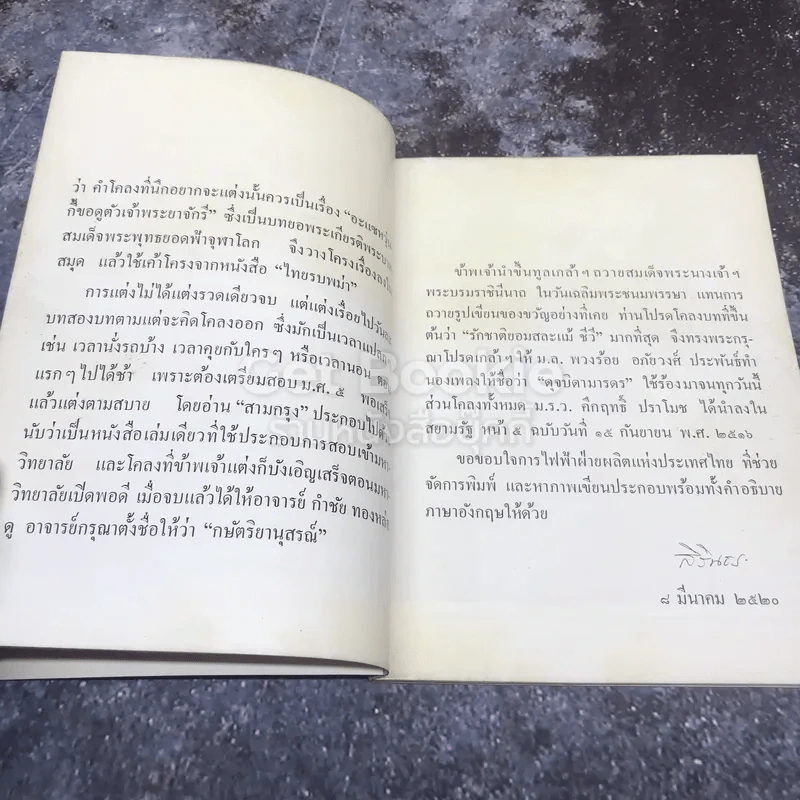 ว่า คำโคลงที่นึกอยากจะแต่งนั้นควรเป็นเรื่อง “อะแซหวุ่น
กี้ขอดูตัวเจ้าพระยาจักรี” ซึ่งเป็นบทยอพระเกียรติพระบาท
สมเด็จพระพุทธยอดฟ้าจุฬาโลก จึงวางโครงเรื่องลง
สมุด แล้วใช้เค้าโครงจากหนังสือ “ไทยรบพม่า”
การแต่งไม่ได้แต่งรวดเดียวจบ แต่แต่งเรื่อยไปวันละ
บทสองบทตามแต่จะคิดโคลงออก ซึ่งมักเป็นเวลาแปลก
เช่น เวลานั่งรถบ้าง เวลาคุยกับใครๆ หรือเวลานอน
แรกๆ ไปได้ช้า เพราะต้องเตรียมสอบ ม.ศ. ๕ พอเสร็จ
แล้วแต่งตามสบาย โดยอ่าน “สามกรุง” ประกอบไป
นับว่าเป็นหนังสือเล่มเดียวที่ใช้ประกอบการสอบเข้ามหา
วิทยาลัย และโคลงที่ข้าพเจ้าแต่งก็บังเอิญเสร็จตอนมหา
วิทยาลัยเปิดพอดี เมื่อจบแล้วได้ให้อาจารย์ กำชัย ทองหล่อ
ดู อาจารย์กรุณาตั้งชื่อให้ว่า “กษัตริยานุสรณ์”
ข้าพเจ้านำขึ้นทูลเกล้าฯ ถวายสมเด็จพระนางเจ้าฯ
พระบรมราชินีนาถ ในวันเฉลิมพระชนมพรรษา แทนการ
ถวายรูปเขียนของขวัญอย่างที่เคย ท่านโปรดโคลงบทที่ขึ้น
ต้นว่า “รักชาติยอมสละแม้ ชีวี” มากที่สุด จึงทรงพระกรุ-
ณาโปรดเกล้าฯ ให้ ม.ล. พวงร้อย อภัยวงศ์ ประพันธ์ทำ
นองเพลงให้ชื่อว่า “ดุจบิดามารดร” ใช้ร้องมาจนทุกวันนี้
ส่วนโคลงทั้งหมด ม.ร.ว. คึกฤทธิ์ ปราโมช ได้นำลงใน
สยามรัฐ หน้า ๕ ฉบับวันที่ ๑๕ กันยายน พ.ศ. ๒๕๑๖
ขอขอบใจการไฟฟ้าฝ่ายผลิตแห่งประเทศไทย ที่ช่วย
จัดการพิมพ์ และหาภาพเขียนประกอบพร้อมทั้งคำอธิบาย
ภาษาอังกฤษให้ด้วย
สิรินธร
๘ มีนาคม ๒๕๒๐
Get Bookie